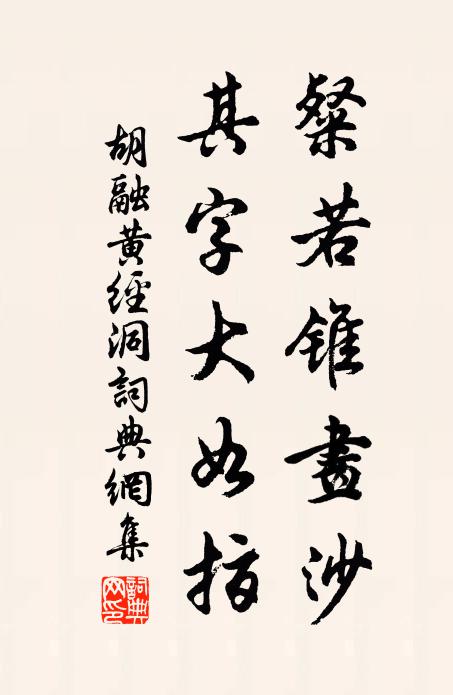 粲若錐畫沙
其字大如指
胡融黄經洞詞典網集
詞典網印